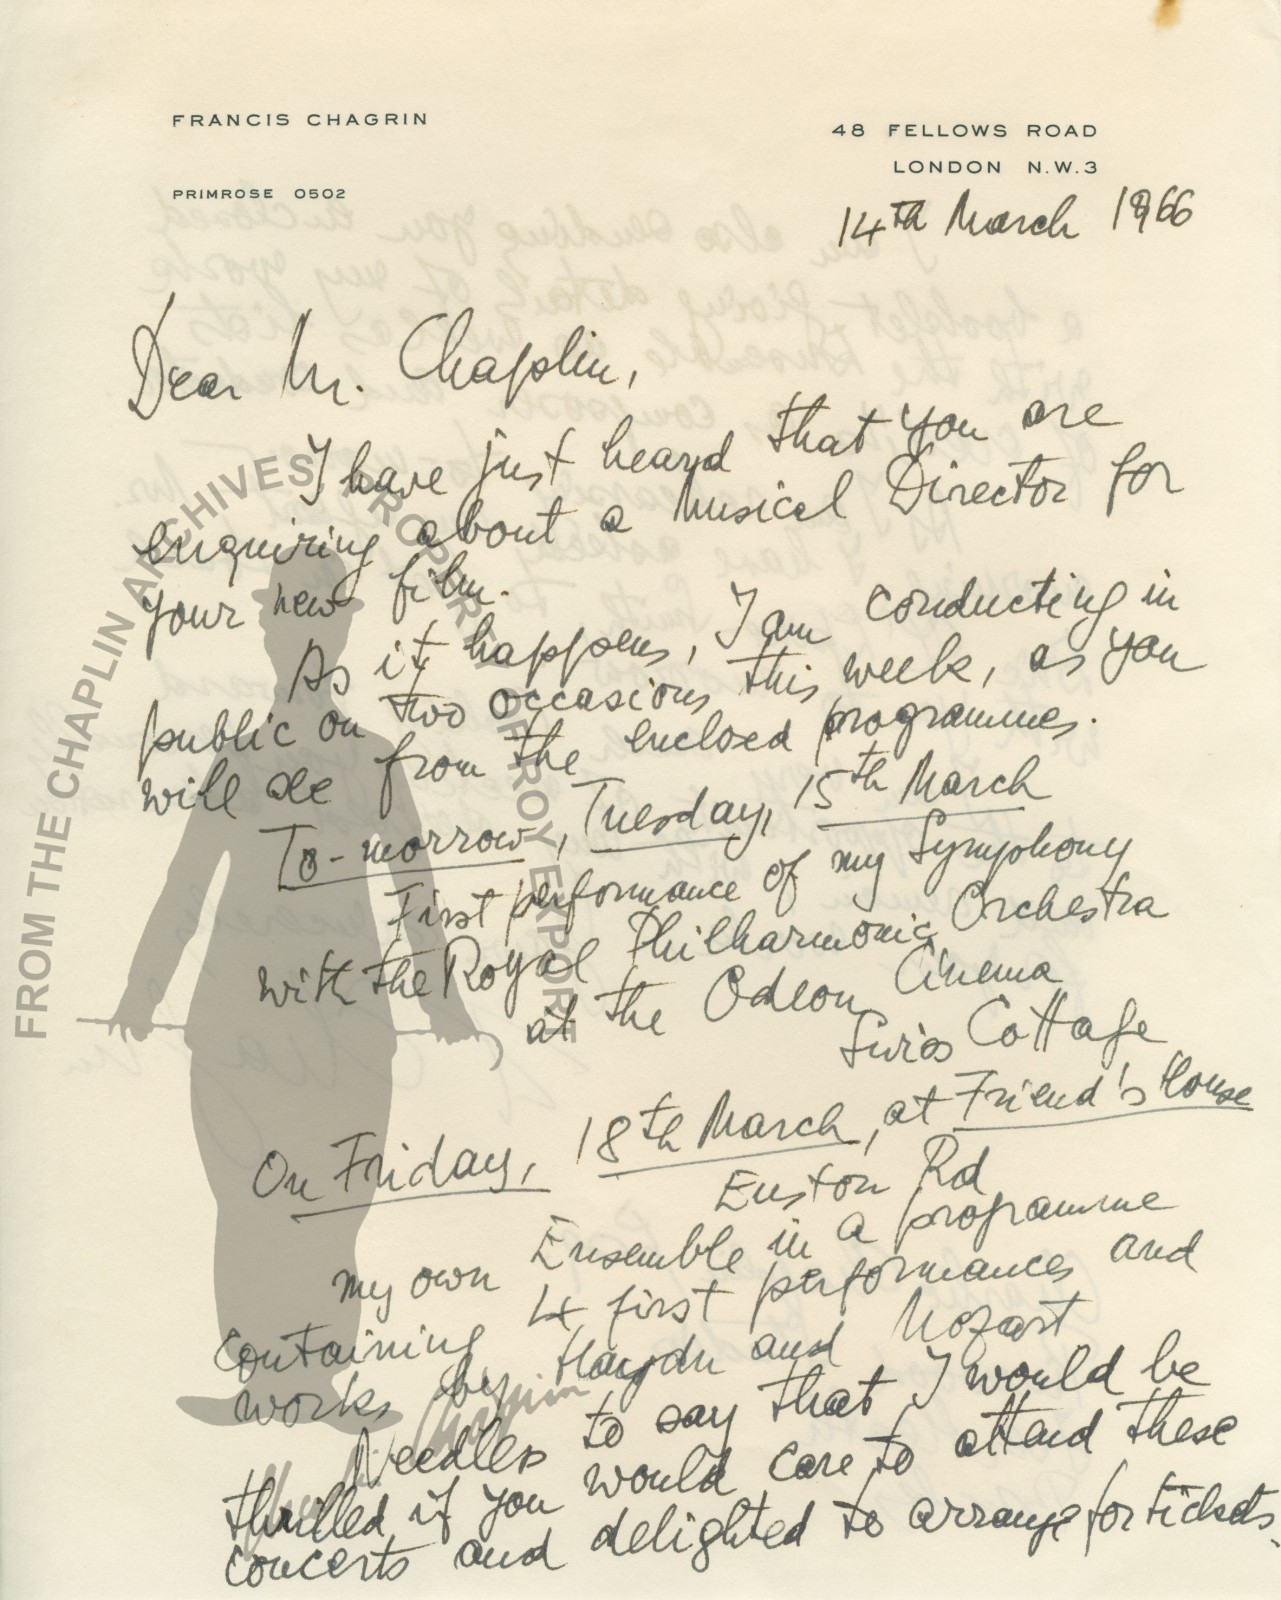 FRANCIS CHAGRIN
PRIMROSE 0502
48 FELLOWS ROAD
LONDON N.W.3
14th March 1966
Dear Mr. Chaplin,
I have just heard that you are
enquiring about a Musical Director for
your new film.
As it happens, I am conducting in
public on two occasions this week, as you
will see from the enclosed programmes.
To-morrow, Tuesday, 15th March
First performance of my Symphony
with the Royal Philharmonic Orchestra
at the Odeon Cinema
Swiss Cottage
On Friday, 18th March, at Friend's House
Euston Rd
my own Ensemble in a programme
containing 4 first performances and
works by Haydn and Mozart
Needless to say that I would be
thrilled if you would care to attend these
concerts and delighted to arrange for tickets.
FROM THE CHAPLIN ARCHIVES PROPERTY OF ROY EXPORT